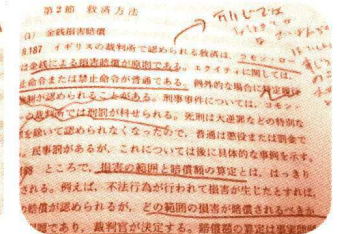 第2節 救済方法
(1) 金銭損害賠償
9.187 イギリスの裁判所で認められる救済は、コモン・ロー
は金銭による損害賠償が原則である。エクイティに関しては、
止命令または禁止命令が普通である。例外的な場合に
が認められることがある。刑事事件については、コモン・
の裁判所では刑罰が科せられる。死刑は大逆罪などの特別な
を除いて認められなくなったので、普通は懲役または罰金で
。民事罰があるが、これについては後に具体的な事例を示す。
ところで、損害の範囲と賠償額の算定とは、はっきり
される。例えば、不法行為が行われて損害が生じたとすれば、
賠償が認められるが、どの範囲の損害が賠償されるべきか
問題であり、裁判官が決定する。賠償額の算定は事実問